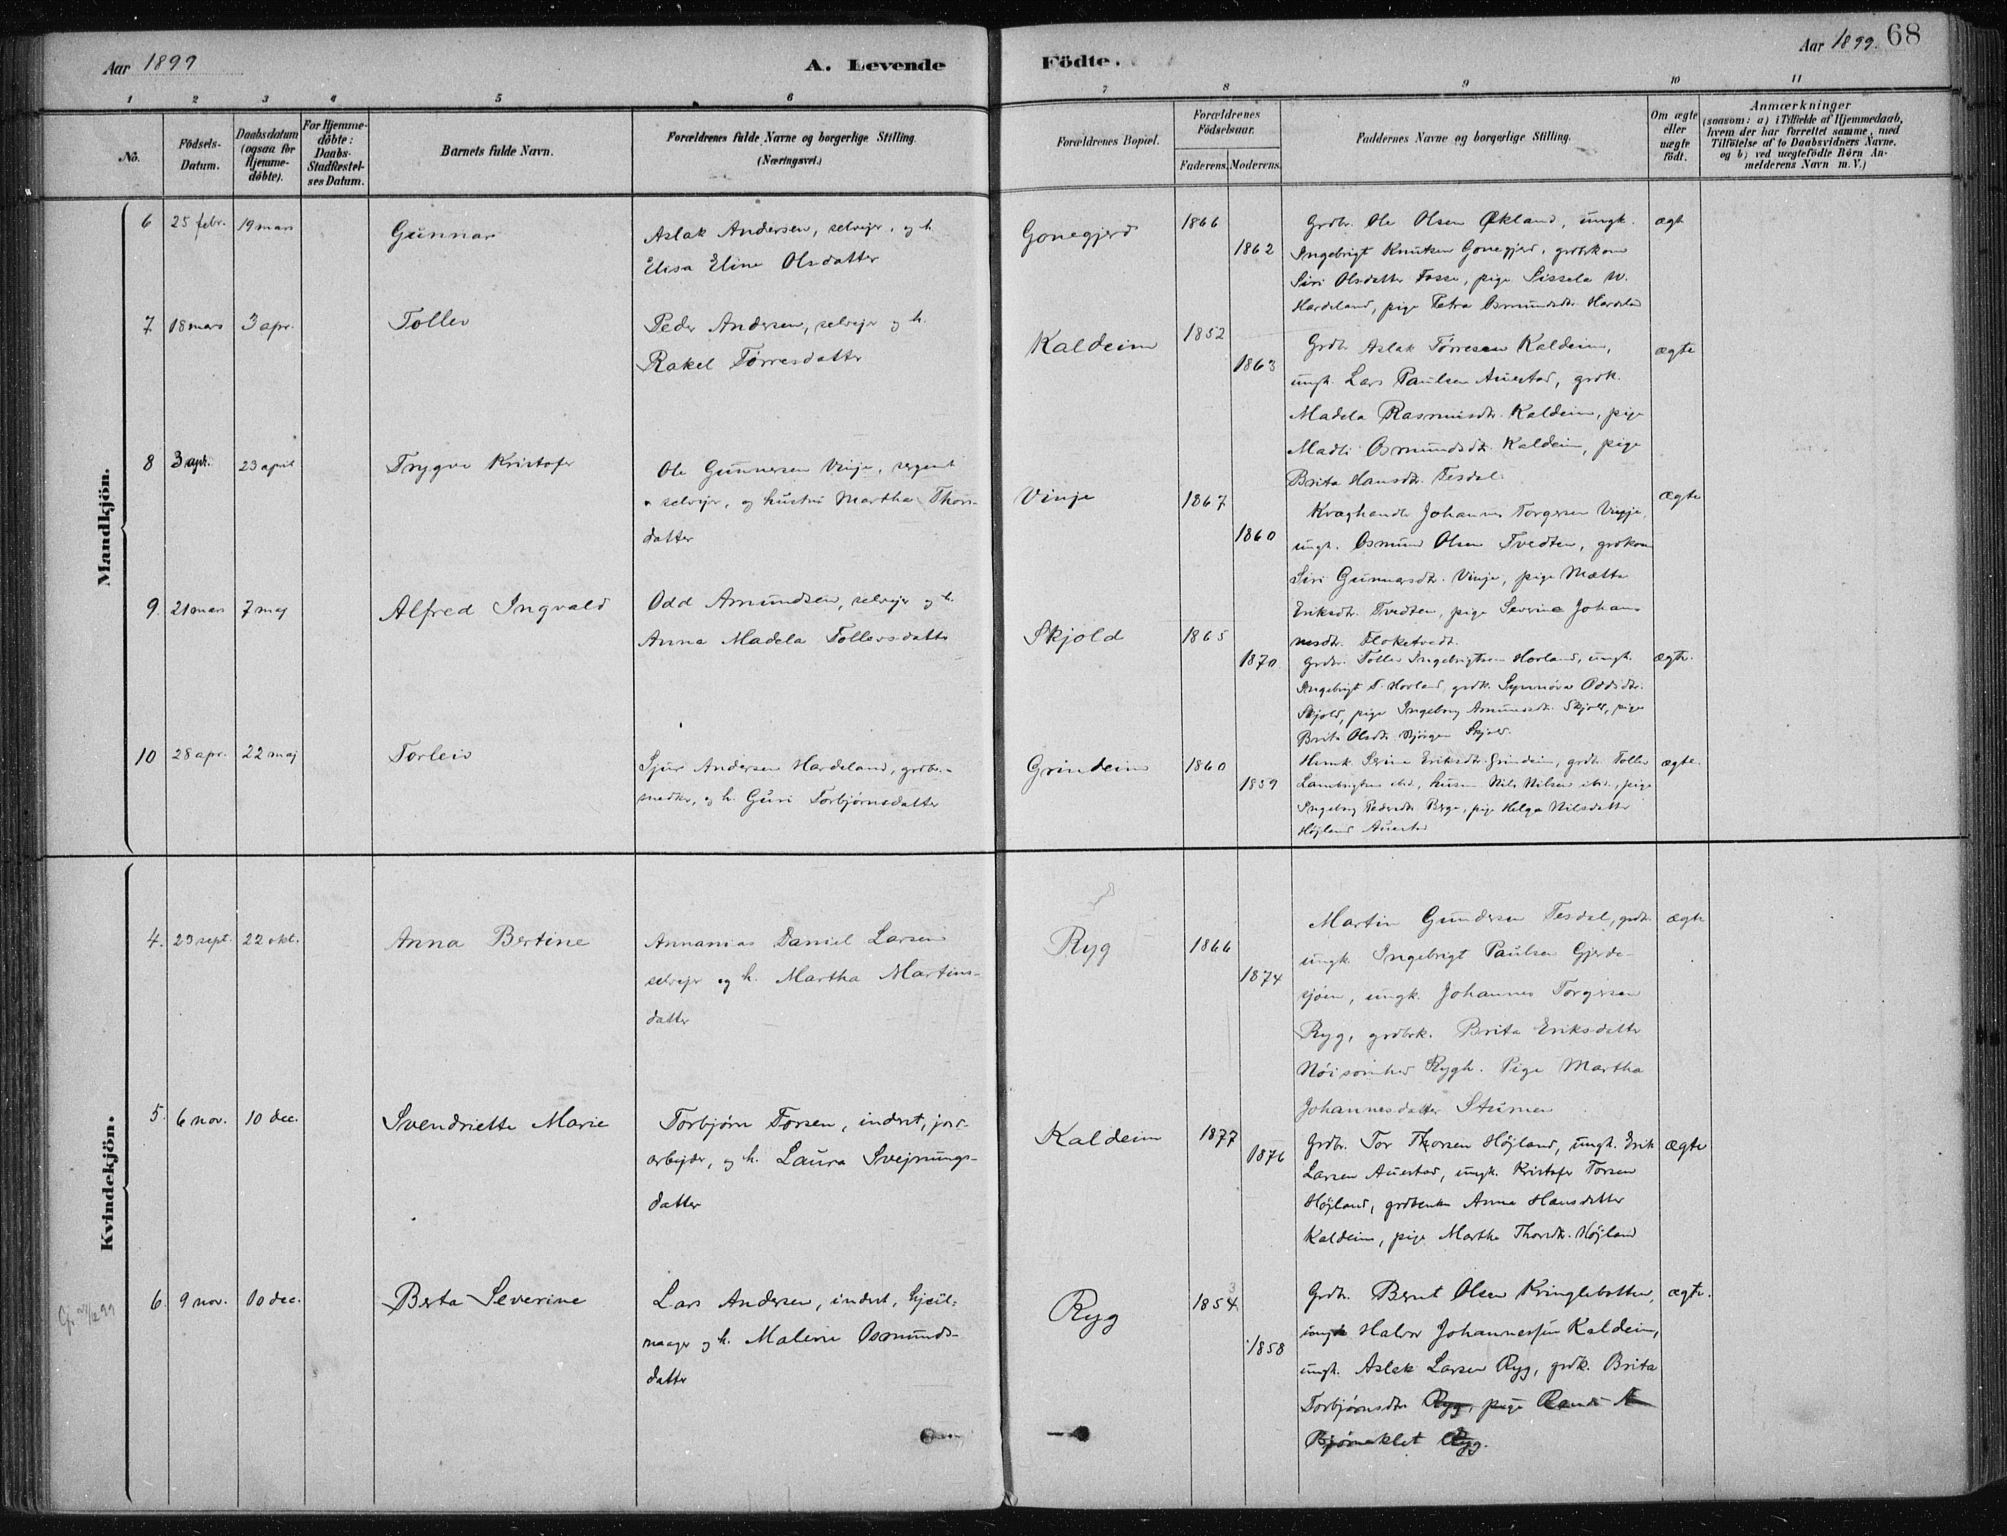 Aar 1899
A. Levende
Födte.
Aar 1899.
68
1 2 3 4 5 6 7 8 9 10 11
No.
Födsels-
Datum.
Daabsdatum
(ogsaa for
Hjemme-
döbte).
For Hjemme-
döbte:
Daabs-
Stadfæstel-
ses Datum.
Barnets fulde Navn.
Forældrenes fulde Navne og borgerlige Stilling.
(Næringsvei.)
Forældrenes Bopæl.
Forældrenes
Födselsaar.
Faderens. Moderens.
Faddernes Navne og borgerlige Stilling.
Om ægte
eller
uægte
födt.
Anmærkninger
(saasom: a) i Tilfælde af Hjemmedaab,
hvem der har forrettet samme, med
Tilföielse af to Daabsvidners Navne.
og b) ved uægtefödte Börn An-
melderens Navn m. V.)
Mandkjön.
6 25 febr. 19 mars
Gunnar
Aslak Andersen, selvejer, og h.
Elisa Eline Olsdatter
Gonegjerd
1866
1862
Grdbr. Ole Olsen Økland, ungk.
Ingebrigt Knutsen Gonegjerd, grdbrkone
Siri Olsdatter Fosse, pige Sissela
Hardeland, pige Petra Osmundsdtr. Hardeland
ægte
7 18 mars 3 apr.
Tollev
Peder Andersen, selvejer og h.
Rakel Tørresdatter
Kaldeim
1852
1863
Grdb. Aslak Tørresen Kaldeim,
ungk. Lars Paulsen Auestad, grdk.
Madela Rasmusdtr. Kaldeim, pige
Madli Osmundsdtr. Kaldeim, pige
Brita Hansdtr. Tesdal.
ægte
8 3 apr. 23 april
Trygve Kristofer
Ole Gunnersen Vinje, sergent
selvejer, og hustru Martha Thors-
datter
Vinje
1867
1860
Kræghandler Johannes Torgersen Vinje,
ungk. Osmund Olsen Tvedten, grdkone
Siri Gunnarsdtr. Vinje, pige Mætta
Eriksdtr. Tvedten, pige Severine Johan-
nesdtr. Floketvedt.
ægte
9. 21 mars 7 maj
Alfred Ingvald
Odd Amundsen, selvejer og h.
Anna Madela Tollevsdatter
Skjold
1865
1870.
Grdbr. Tollev Ingebrigtsen Horland, ungk.
Ingebrigt T. Horland, grdk. Synnøva Oddsdtr.
Skjold, pige Ingeborg Amundsdtr. Skjold, pige
Brita Olsdtr. Skjold.
ægte.
10 28 apr. 22 maj
Torleiv
Sjur Andersen Hardeland, grdbr.-
medhr, og h. Guri Torbjørnsdatter
Grindeim
1860
1859
Serine Eriksdtr. Grindeim, grdb. Tollev
Lambrigtsen ibid., husm. Nils Nilsen ibid., pige
Ingeborg Pedersdtr. Berge, pige Helga Nilsdatter
Højland Auestad
ægte.
Kvindekjön.
4. 23 sept. 22 okt.
Anna Bertine
Annanias Daniel Larsen
selvejer og h. Martha Martins-
datter
Ryg
1866
1874
Martin Gundersen Tesdal, grdbr.
ungk. Ingebrigt Paulsen Gjerde-
sjøen, ungk. Johannes Torgersen
Ryg, grdbrk. Brita Eriksdatter
Nöisomhed Rygh. Pige Martha
Johannesdatter Stumen
ægte
5. 6 nov. 10 dec.
Svendriette Marie
Torbjørn Torsen, inderst, jord-
arbejder, og h. Laura Svejnungs-
datter
Kaldeim
1877
1876
Grdbr. Tor Thorsen Højland, ungk. Erik
Larsen Auestad, ungk. Kristofer Torsen
Højland, grdbenke Anna Hansdatter
Kaldeim, pige Martha Thorsdtr. Højland
ægte
6. 9 nov. 10 dec.
Berta Severine
Lars Andersen, inderst, hjul-
mager og h. Malene Osmunds-
datter
Ryg
1854
1858
Grdbr. Bernt Olsen Kringlebotten,
ungk Halvor Johannessen Kaldeim,
ungk. Aslak Larsen Ryg, grdk. Brita
Torbjørnsdtr. Ryg, pige
Ryg.
ægte.